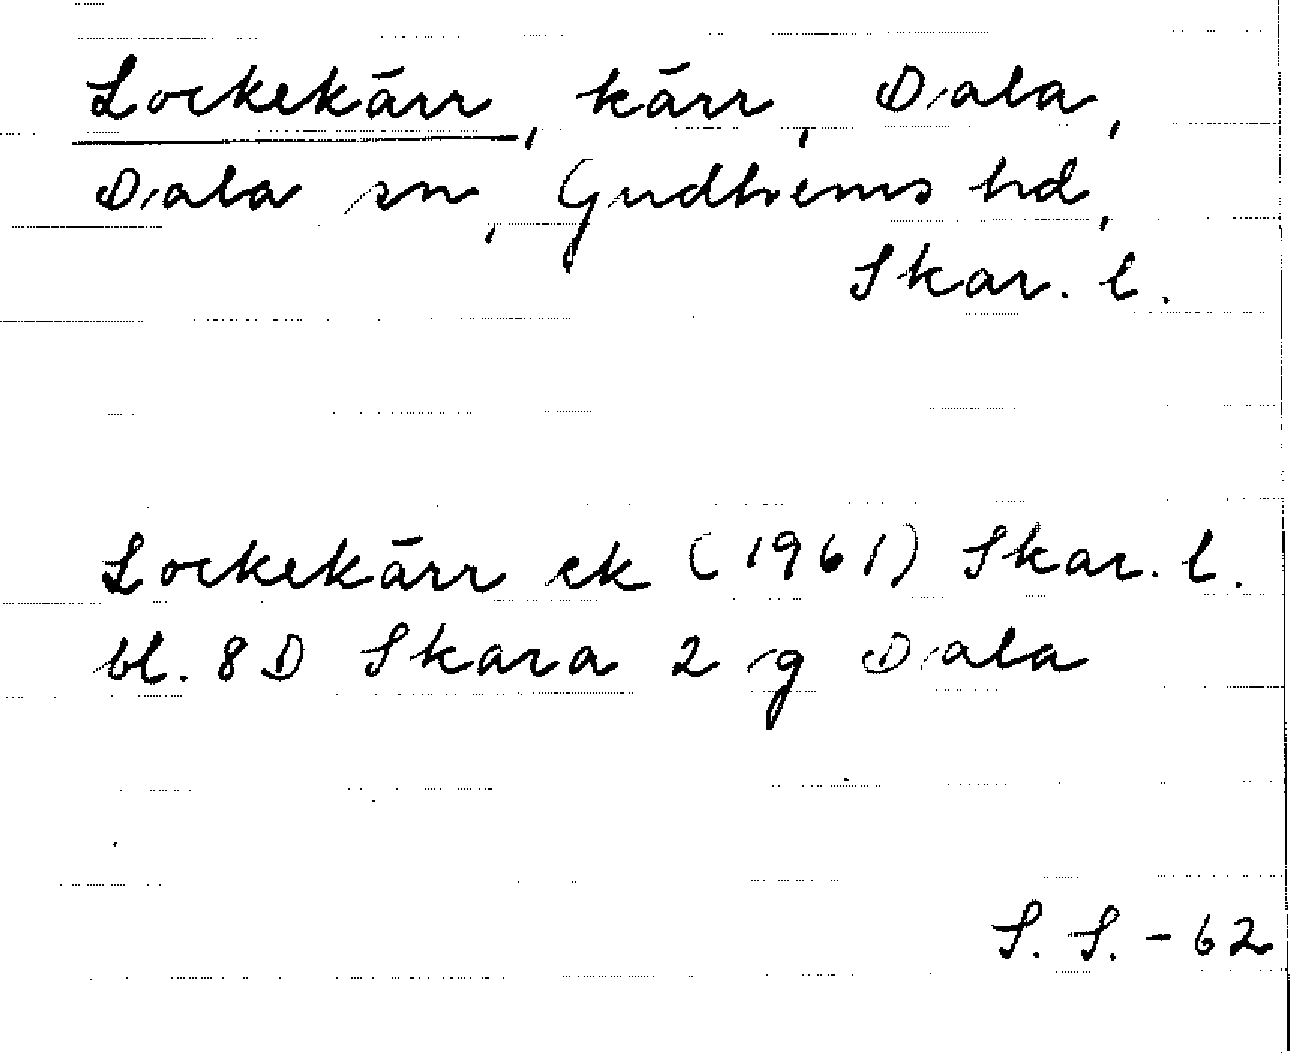 Lockekärr, kärr, Dala,
Dala sn, Gudhems hd,
Skar. l.
Lockekärr ek (1961) Skar. l.
bl. 8 D Skara 2 g Dala
S. S. - 62